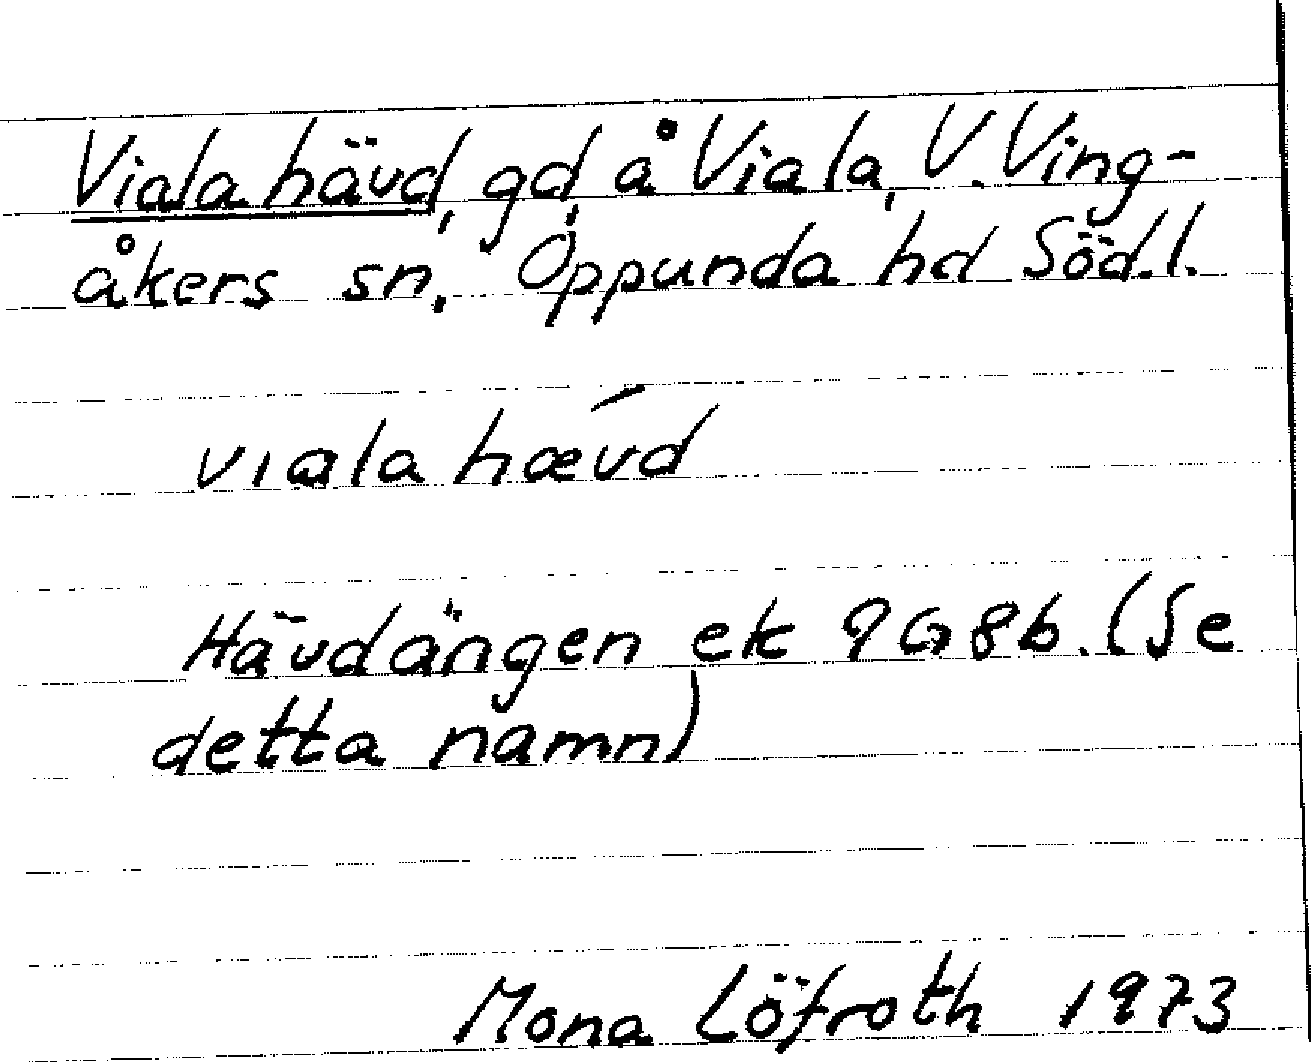 Viala hävd, gd, å Viala, V. Ving-
åkers sn, Oppunda hd Söd.l.
vıala hævd
Hävdängen ek 9G8b. (Se
detta namn)
Mona Löfroth 1973